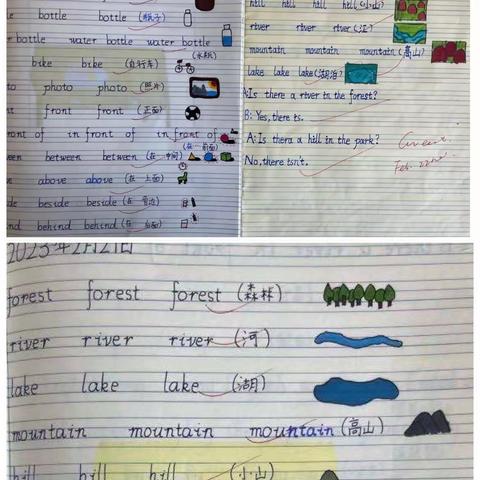 bottle bottle (瓶子)
bottle water bottle water bottle
(水瓶)
bike bike (自行车)
to photo photo (照片)
t front front (正面)
ront of in front of in front of
(在…前面)
een between between (在…中间)
above above (在…上面)
de beside beside (在…旁边)
nd behind behind (在…后面)
hill hill hill hill (小山)
river river river (江)
mountain mountain mountain (高山)
lake lake lake (湖泊)
A: Is there a river in the forest?
B: Yes, there is.
A: Is thera a hill in the park?
No, there isn't.
Great!
2023年2月21日
forest forest forest (森林)
river river river (河)
lake lake lake (湖)
mountain mountain mountain (高山)
hill hill hill (小山)